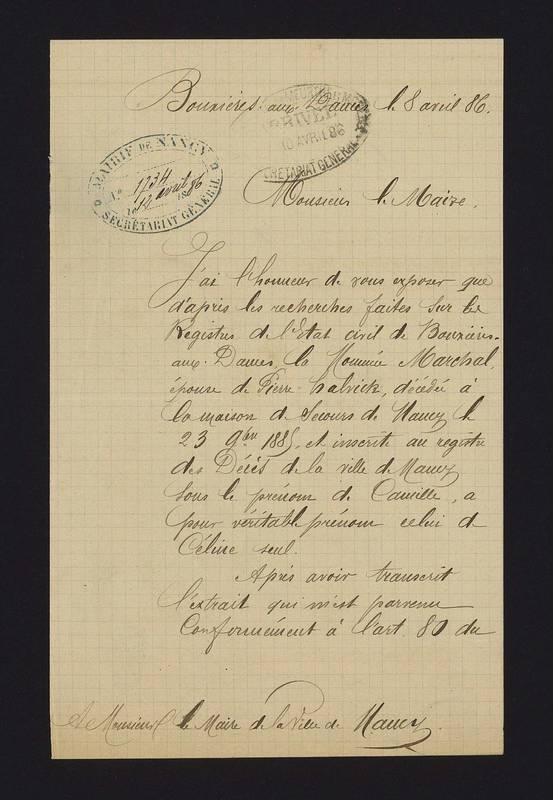 Bouxières-aux-Dames le 8 avril 86.
ARRIVÉE
10 AVRIL 86
SECRETARIAT GENERAL
MAIRIE DE NANCY
No 1734
12 avril 1886
SECRÉTARIAT GÉNÉRAL
Monsieur le Maire,
J'ai l'honneur de vous exposer que
d'après les recherches faites sur les
Registres de l'Etat civil de Bouxières-
aux-Dames, la Nommée Marchal,
épouse de Pierre, décédée à
la maison de Secours de Nancy le
23 9bre 1885, et inscrite au registre
des Décès de la ville de Nancy
sous le prénom de Camille, a
pour véritable prénom celui de
Céline seul.
Après avoir transcrit
l'extrait qui m'est parvenu
Conformément à l'art. 80 du
A Monsieur le Maire de la Ville de Nancy.